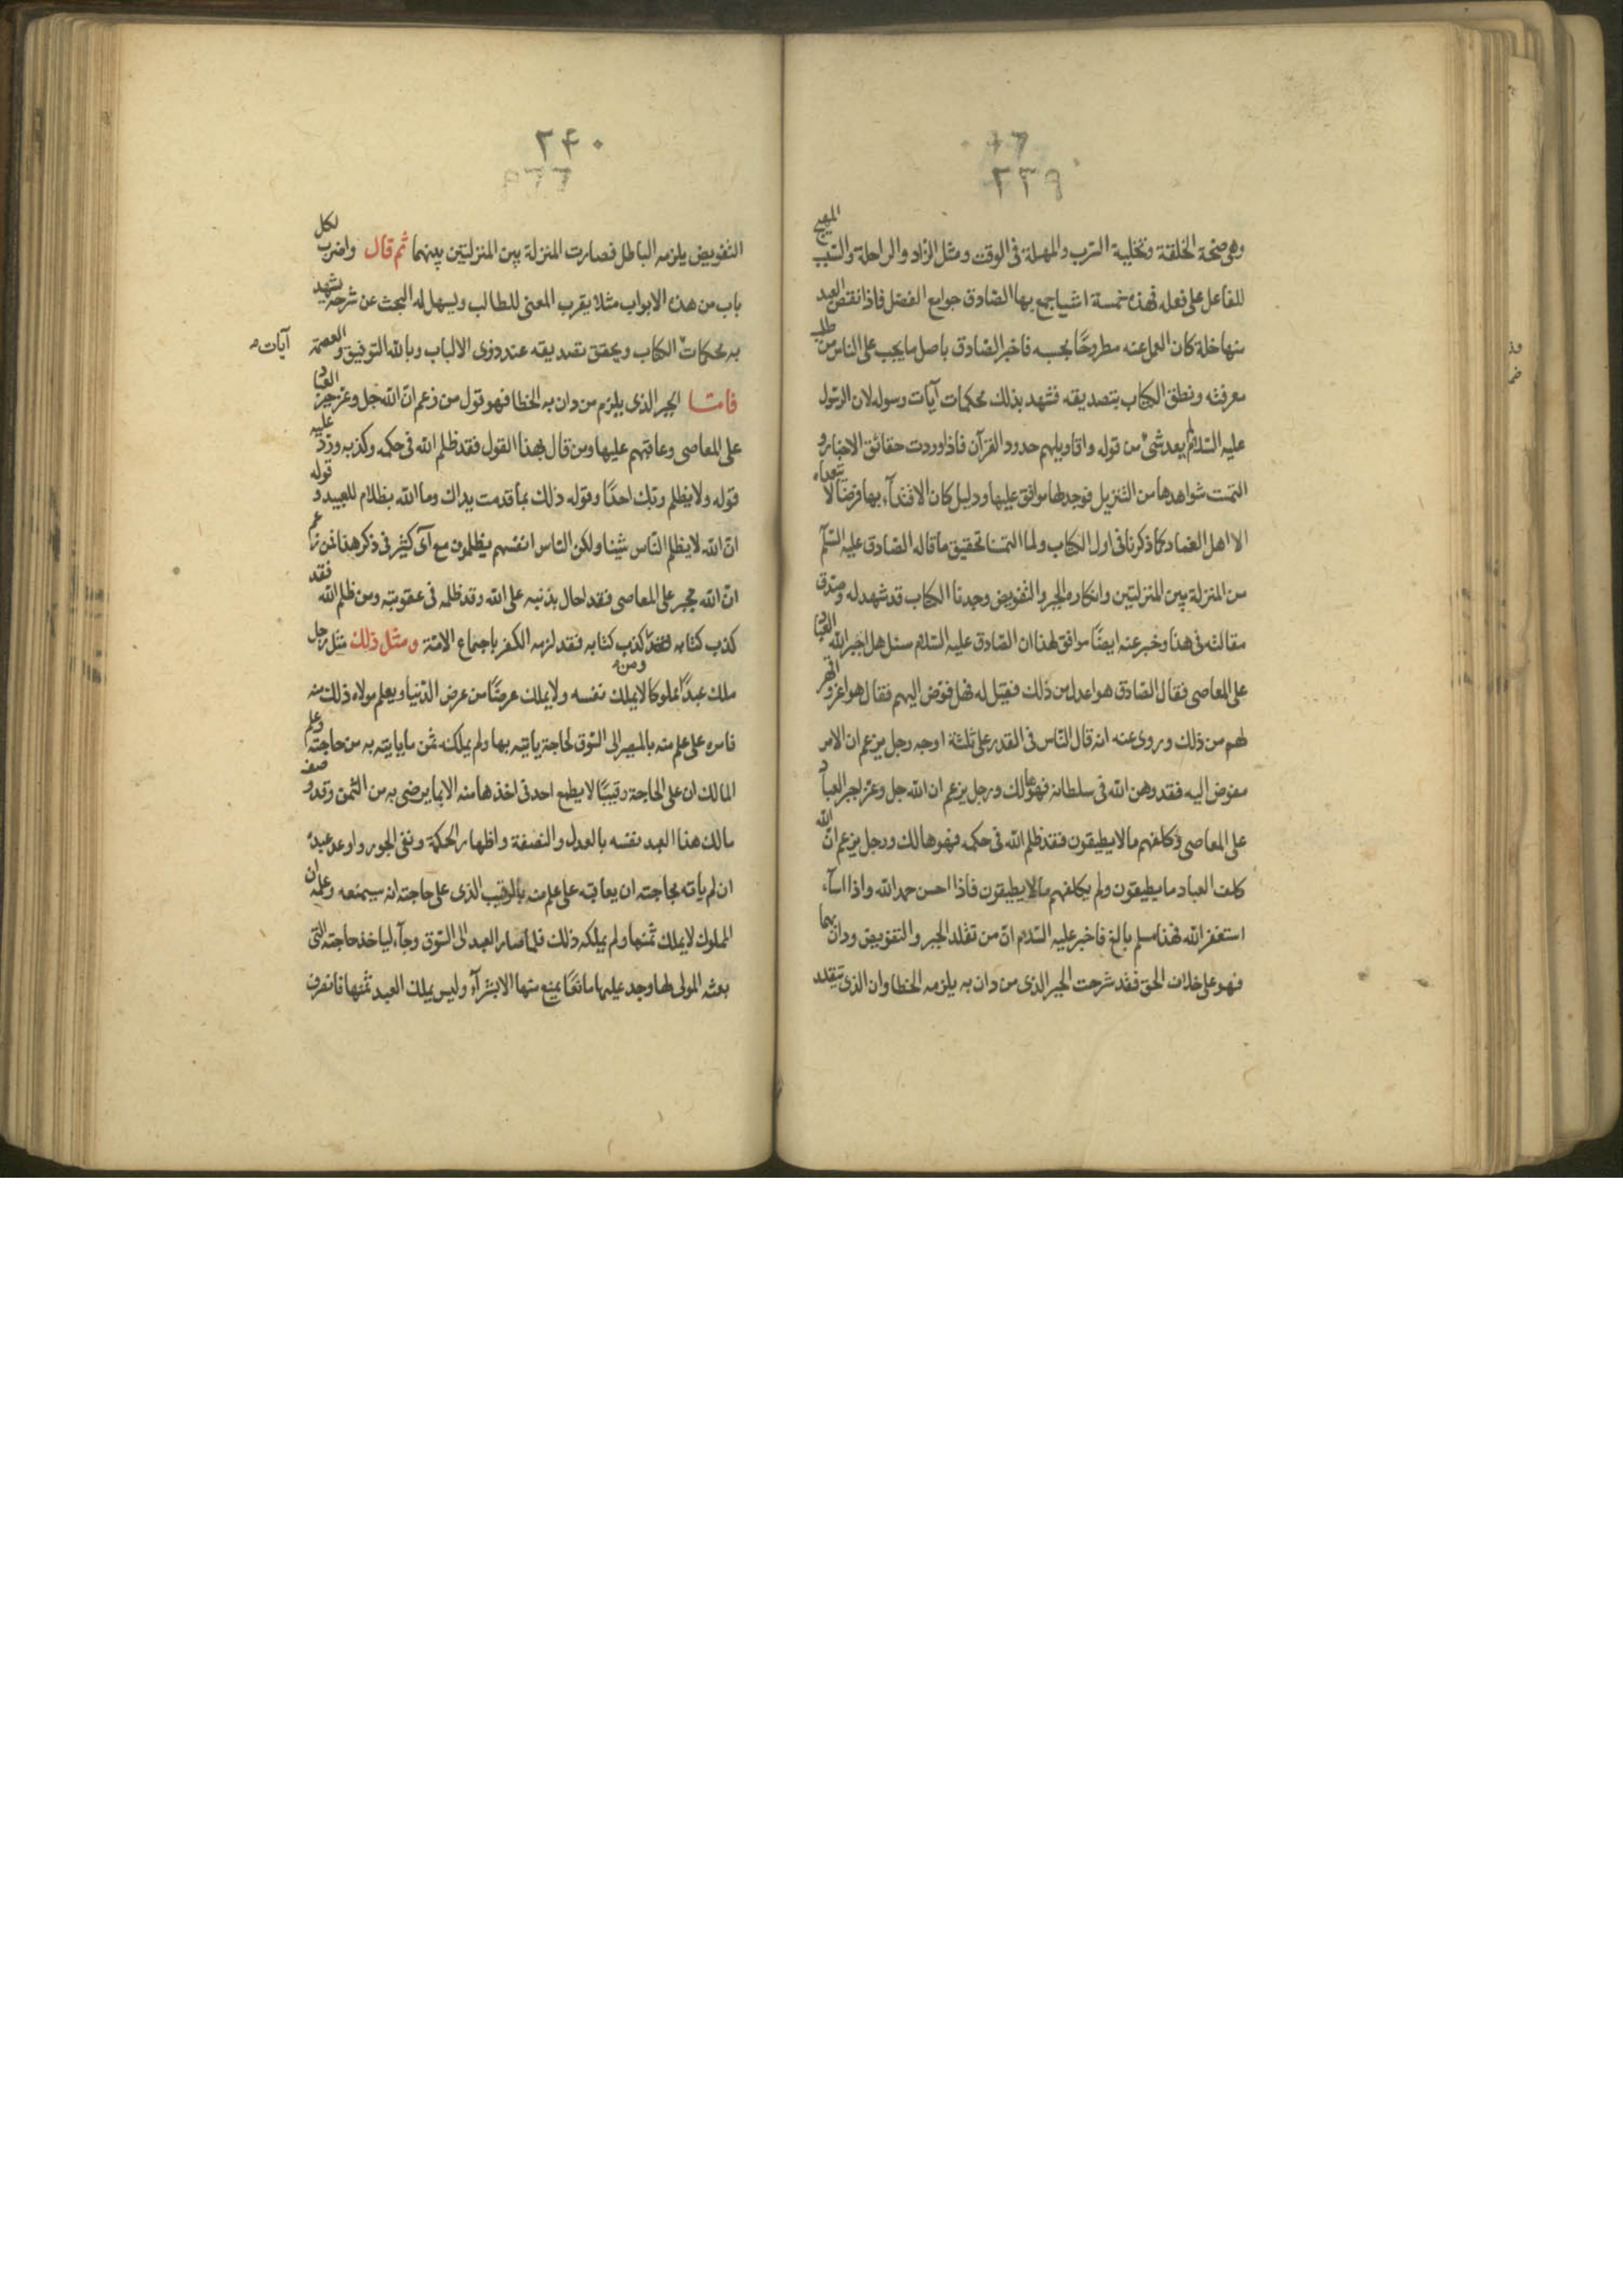 ٢٣٩
وهى صحة الخلقة وتخلية السرب والمهلة فى الوقت ومثل الزاد والراحلة والسبب المهيج
للفاعل على فعله فهذه خمسة اشيا جمع بها الصادق جوامع الفضل فاذا نقص العبد
منها خلة كان العمل عنه مطروحًا بحسبه فاخبر الصادق باصل ما يجب على الناس من طلب
معرفته ونطق الكتاب بتصديقه فشهد بذلك محكمات آيات رسوله لان الرسول
عليه السلام لم يعد شئ من قوله واقاويلهم حدود القرآن فاذا وردت حقائق الاخبار و
التمست شواهدها من التنزيل فوجد لها موافق عليها ودليل كان الاقتدآء بها فرضًا لا يتعداه
الا اهل العناد كما ذكرنا فى اول الكتاب ولما التمسنا تحقيق ما قاله الصادق عليه السلم
من المنزلة بين المنزلتين وانكاره الجبر والتفويض وجدنا الكتاب قد شهد له وصدق
مقالته فى هذا وخبر عنه ايضًا موافق لهذا ان الصادق عليه السلام سئل هل اجبر الله العباد
على المعاصى فقال الصادق هو اعدل من ذلك فقيل له فهل فوض اليهم فقال هو اعز واقهر
لهم من ذلك وروى عنه انه قال الناس فى القدر على ثلثة اوجه رجل يزعم ان الامر
مفوض اليه فقد وهن الله فى سلطانه فهو هالك ورجل يزعم ان الله جل وعز اجبر العباد
على المعاصى وكلفهم ما لا يطيقون فقد ظلم الله فى حكمه فهو هالك ورجل يزعم ان الله
كلف العباد ما يطيقون ولم يكلفهم ما لا يطيقون فاذا احسن حمد الله واذا اسآء
استغفر الله فهذا مسلم بالغ فاخبر عليه السلام ان من تقلد الجبر والتفويض ودان بهما
فهو على خلاف الحق فقد شرحت الجبر الذى من دان به يلزمه الخطا وان الذى يتقلد
٢٤٠
التفويض يلزمه الباطل فصارت المنزلة بين المنزلتين بينهما ثم قال واضرب لكل
باب من هذه الابواب مثلا يقرب المعنى للطالب ويسهل له البحث عن شرحه يشهد
به محكمات الكتاب ويحقق تصديقه عند ذوى الالباب وبالله التوفيق والعصمة
آيات
فامّا الجبر الذى يلزم من دان به الخطا فهو قول من زعم ان الله جل وعز جبر العباد
على المعاصى وعاقبهم عليها ومن قال بهذا القول فقد ظلم الله فى حكمه وكذبه ورد عليه
قوله ولا يظلم ربك احدًا وقوله ذلك بما قدمت يداك وما الله بظلام للعبيد و قوله
ان الله لا يظلم الناس شيئا ولكن الناس انفسهم يظلمون مع آى كثير فى ذكر هذا فمن زعم
ان الله مجبر على المعاصى فقد احال بذنبه على الله وقد ظلمه فى عقوبته ومن ظلم الله فقد
كذب كتابه ومن كذب كتابه فقد لزمه الكفر باجماع الامة ومثل ذلك مثل رجل
ملك عبدًا مملوكا لا يملك نفسه ولا يملك عرضًا من عرض الدنيا ويعلم مولاه ذلك منه
فامره على علم منه بالمصير الى السوق لحاجة ياتيه بها ولم يملكه ثمن ما ياتيه به من حاجته وعلم
المالك ان على الحاجة رقيبًا لا يطمع احد فى اخذها منه الا بما يرضى به من الثمن وقد وصف
مالك هذا العبد نفسه بالعدل والنصفة واظهار الحكمة ونفى الجور واوعد عبده
ان لم ياته بحاجته ان يعاقبه على علم منه بالرقيب الذى على حاجته انه سيمنعه وعلم ان
المملوك لا يملك ثمنها ولم يملكه ذلك فلما صار العبد الى السوق وجآء لياخذ حاجته التى
بعثه المولى لها وجد عليها مانعًا يمنع منها الا بشرآء وليس يملك العبد ثمنها فانصرف